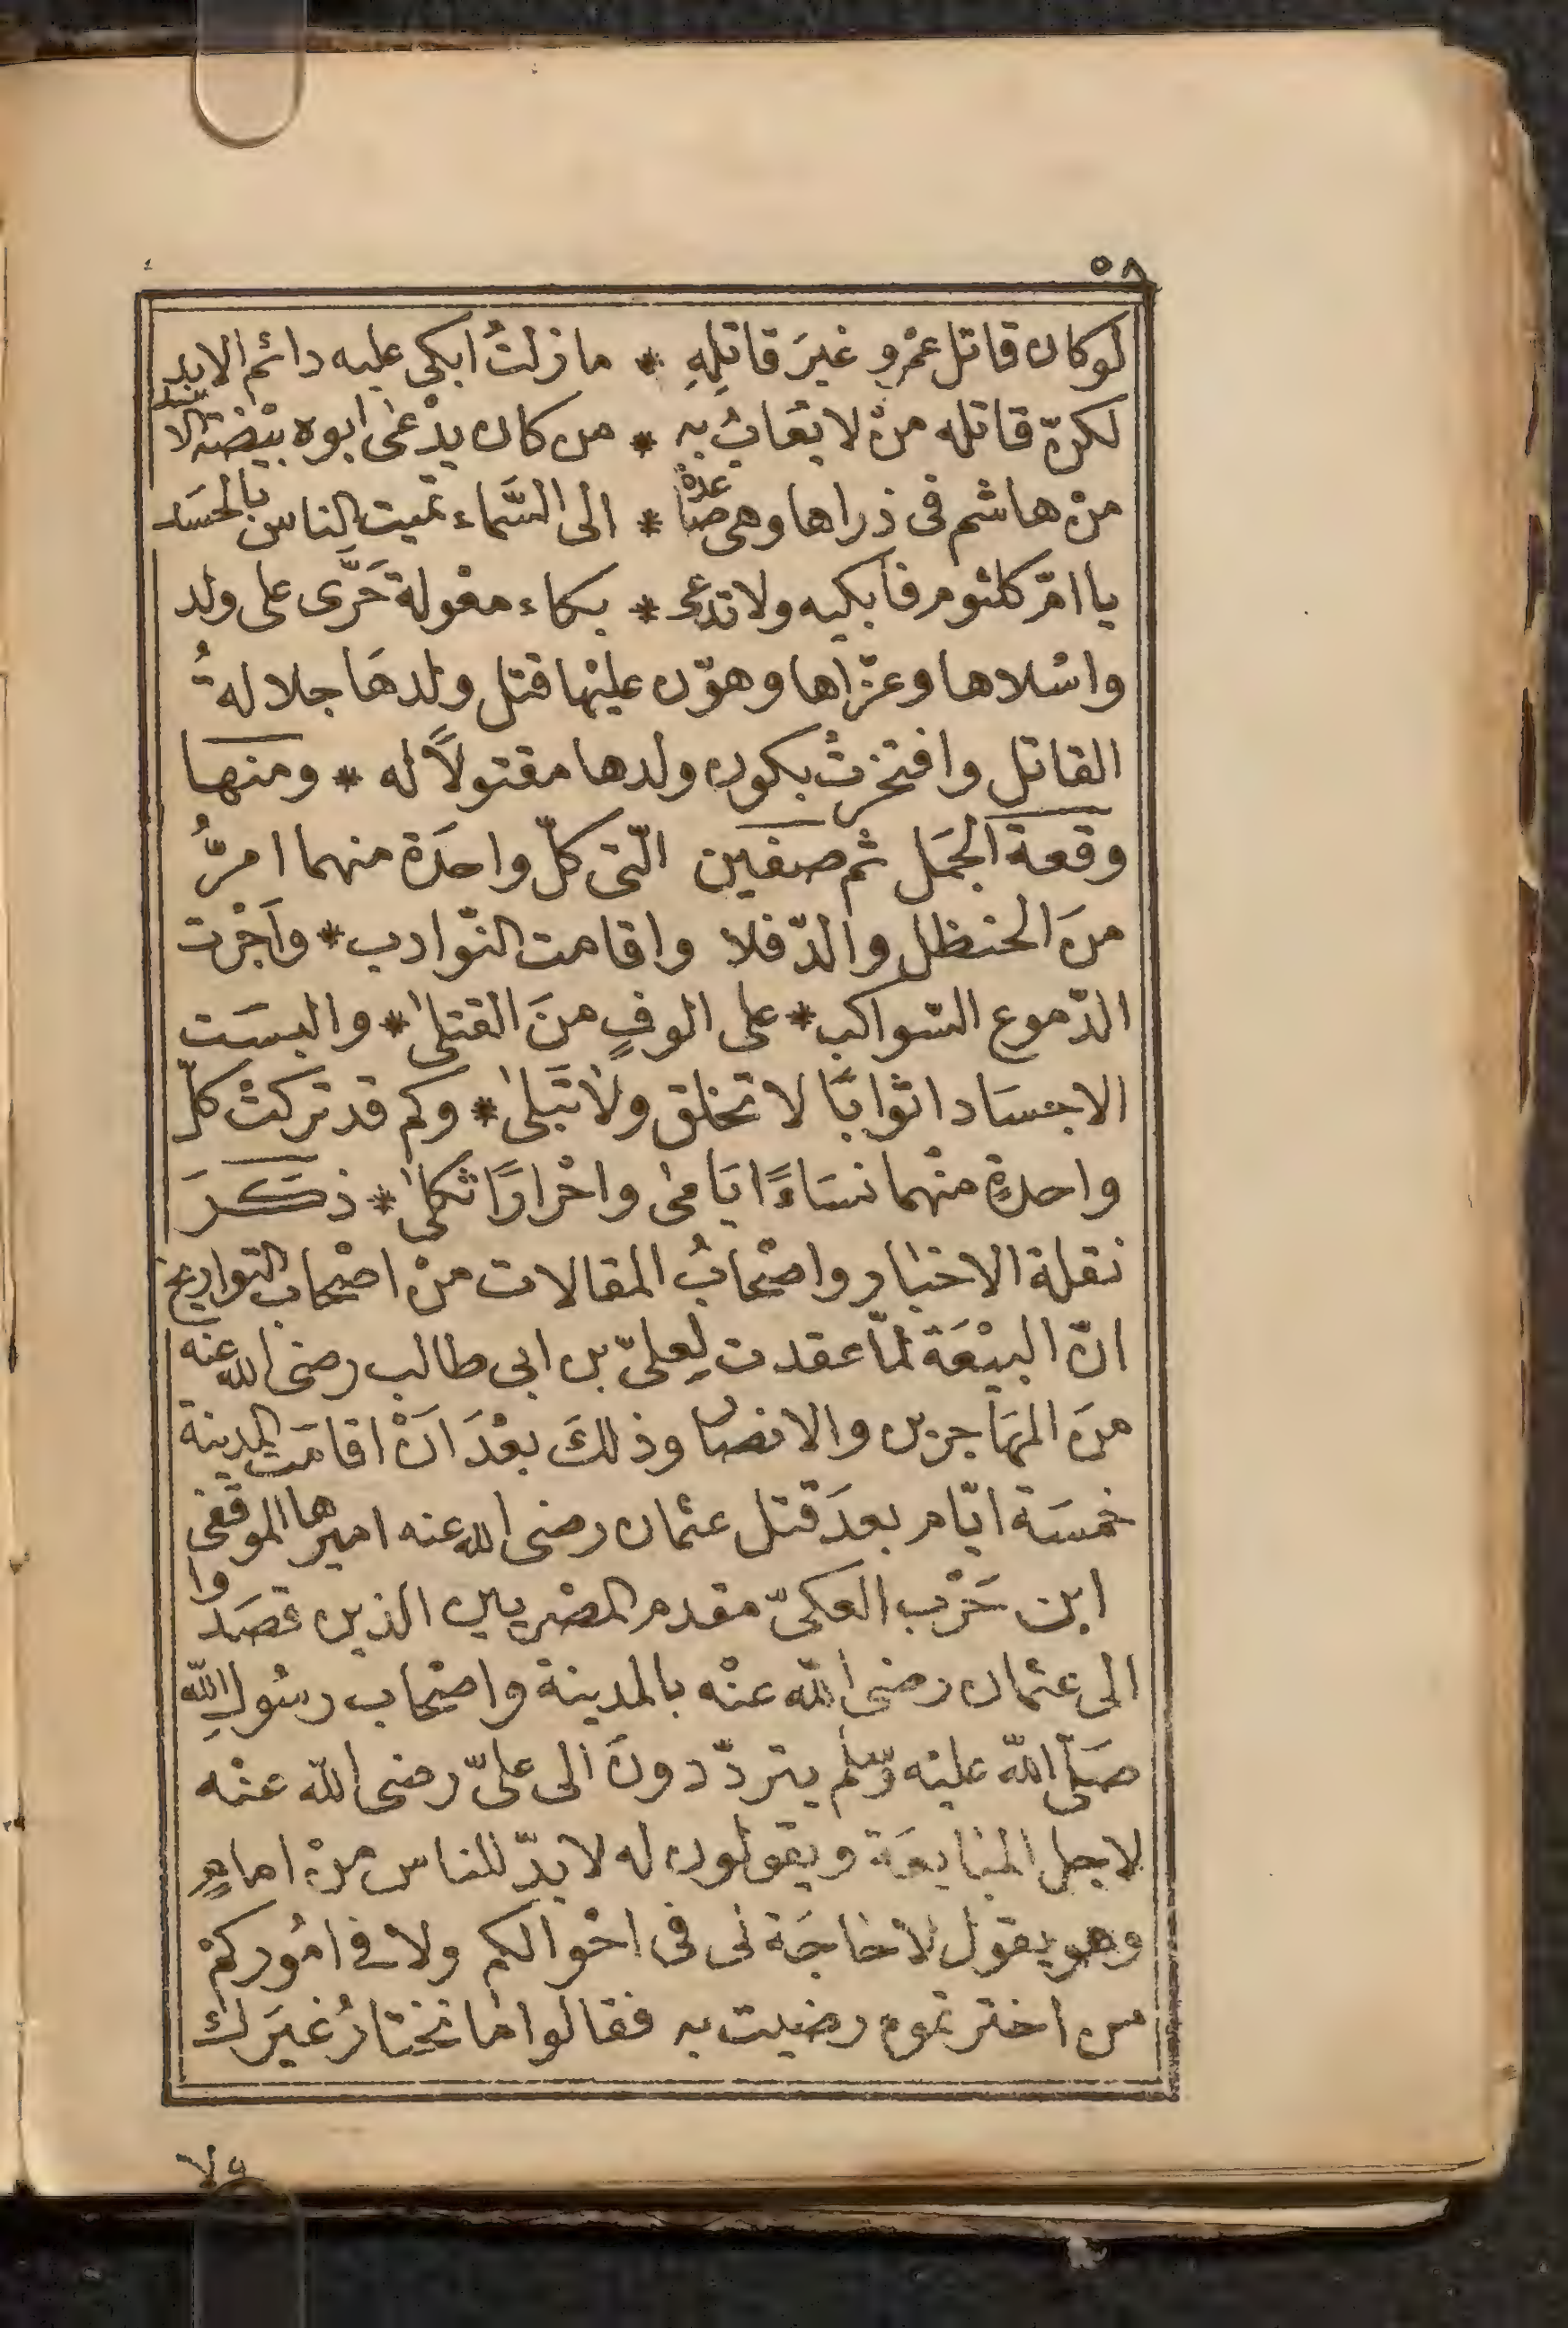 ٥٨
لو كان قاتل عمْرٍو غيرَ قاتِلِهِ * ما زلتُ ابكى عليه دائم الابد
لكنّ قاتله منْ لا يُعَابُ بهِ * من كان يدْعىٰ ابوه بيْضَة البلد
منْ هاشم فى ذراها وهى صاعدة * الى السَّماء تميت الناس بالحسَد
يا امّ كلثوم فابكيه ولا تدعى * بكاء معْولة حَرَّى على ولد
واسْلاها وعزّاها وهوّن عليْها قتل ولدهَا جلالةُ
القاتل وافتخرتْ بكون ولدها مقتولاً له * ومنها
وقعة الجمَل ثم صفين الّتى كلّ واحدَة منهما امرُّ
منَ الحنظل والدّفلا واقامت النّوادب * وآجْرت
الدّموع السّواكب * على الوفٍ منَ القتلىٰ * والبسَت
الاجسَاد اثوابًا لا تخلق ولا تَبلىٰ * وكم قد تركتْ كلّ
واحدةٍ منْهما نسَاءً ايَامىٰ واحْرارًا ثكلىٰ * ذكَرَ
نقلة الاخبَار واصْحابُ المقالات منْ اصْحاب التواريخ
انّ البيْعَة لمّا عقدت لِعلىّ بن ابى طالب رضى الله عنه
منَ المهَاجرين والانصار وذلكَ بعْدَ انْ اقامَت المدينة
خمسَة ايّام بعدَ قتل عثمان رضى الله عنه اميرها الموقفى
ابن حَرْب العكىّ مقدم المصْريين الذين قصَدوا
الى عثمان رضى الله عنْه بالمدينة واصْحاب رسُولِ الله
صَلّى الله عليْه وسّلم يتردّدونَ الى علىّ رضى الله عنْه
لاجل المبَايعَة ويقولون له لا بدّ للناس منْ امامٍ
وهو يقول لا حَاجَة لى فى احْوالكم ولا فى امُوركمْ
من اخترتموه رضيت به فقالوا مَا نختارُ غيَرك
ولا